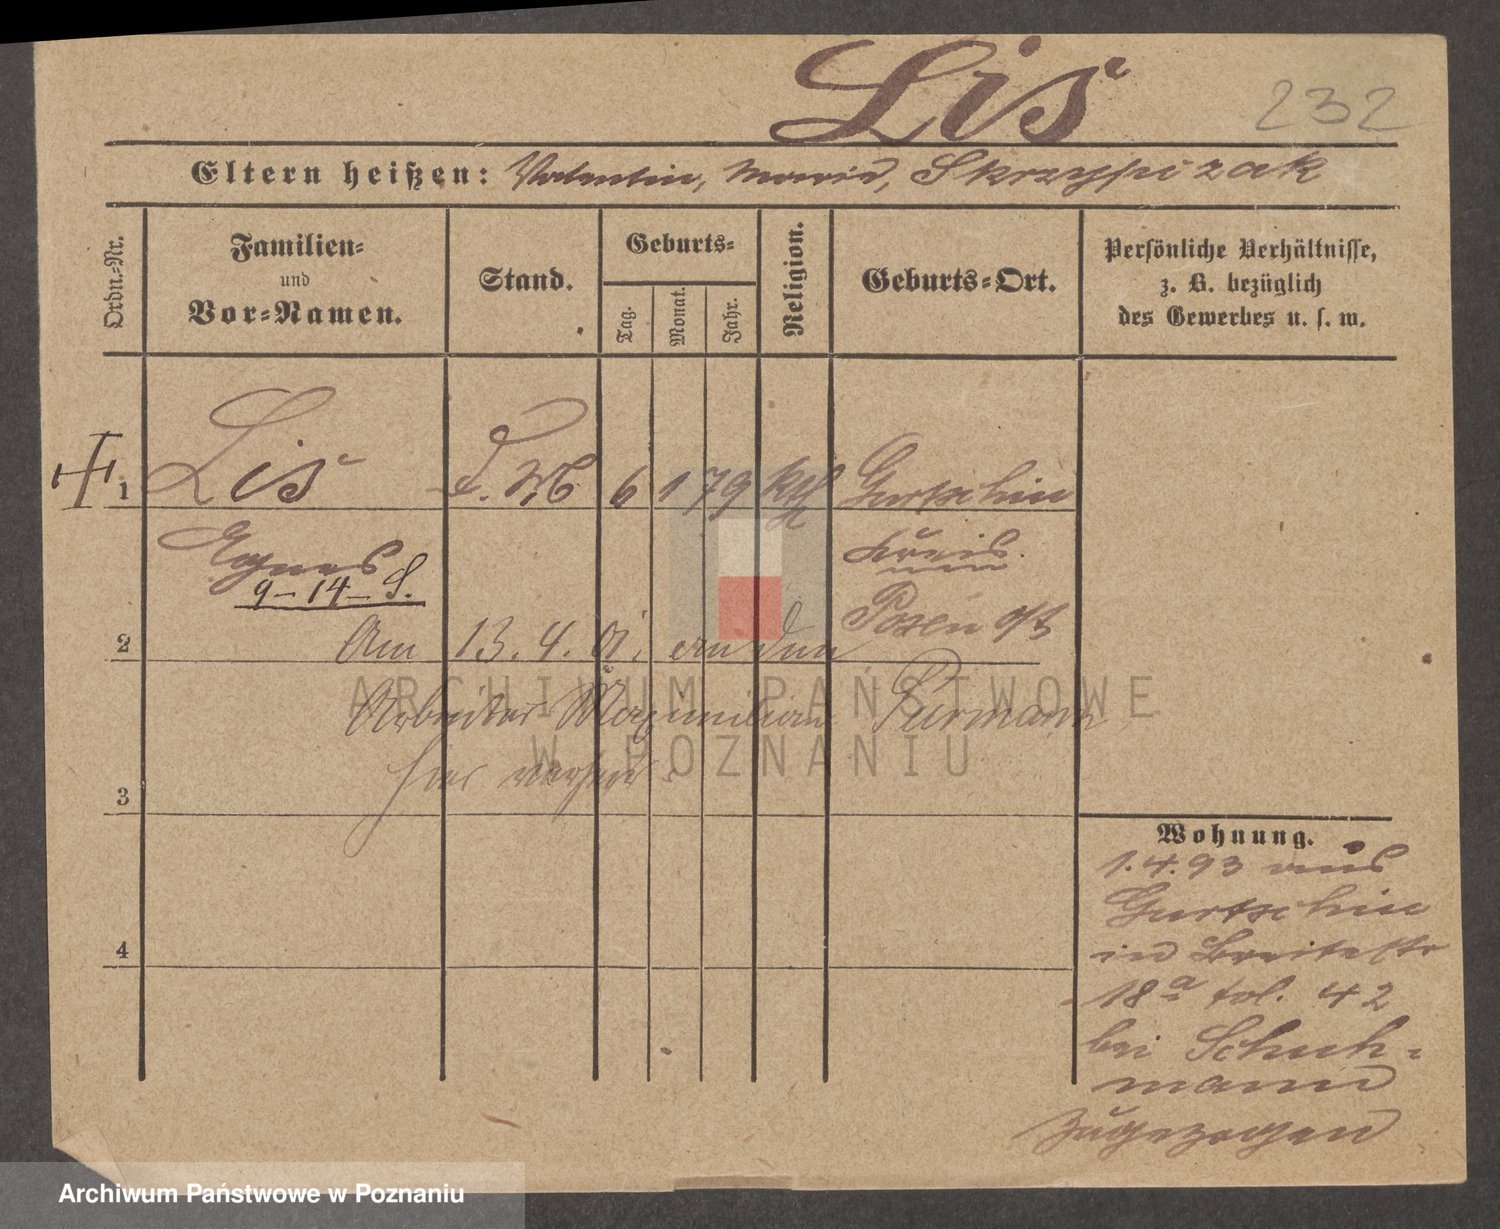 Lis
232
Eltern heißen: Valentin, Marie, Skrzypizak
Ordn.-Nr.
Familien-
und
Vor-Namen.
Stand.
Geburts-
Tag.
Monat.
Jahr.
Religion.
Geburts-Ort.
Persönliche Verhältnisse,
z. B. bezüglich
des Gewerbes u. s. w.
1 Lis D. M 6 1 79 kth Gurtschin
Agnes
9-14-S.
Kreis
Posen
2
Am 13.4.01. an den
Arbeiter Maximilian Purmann
hier verh.
3
4
Wohnung.
1.4.93 aus
Gurtschin
in Breitestr
18a fol. 42
bei Schuh-
mann
zugezogen
ARCHIWUM PAŃSTWOWE
W POZNANIU
Archiwum Państwowe w Poznaniu